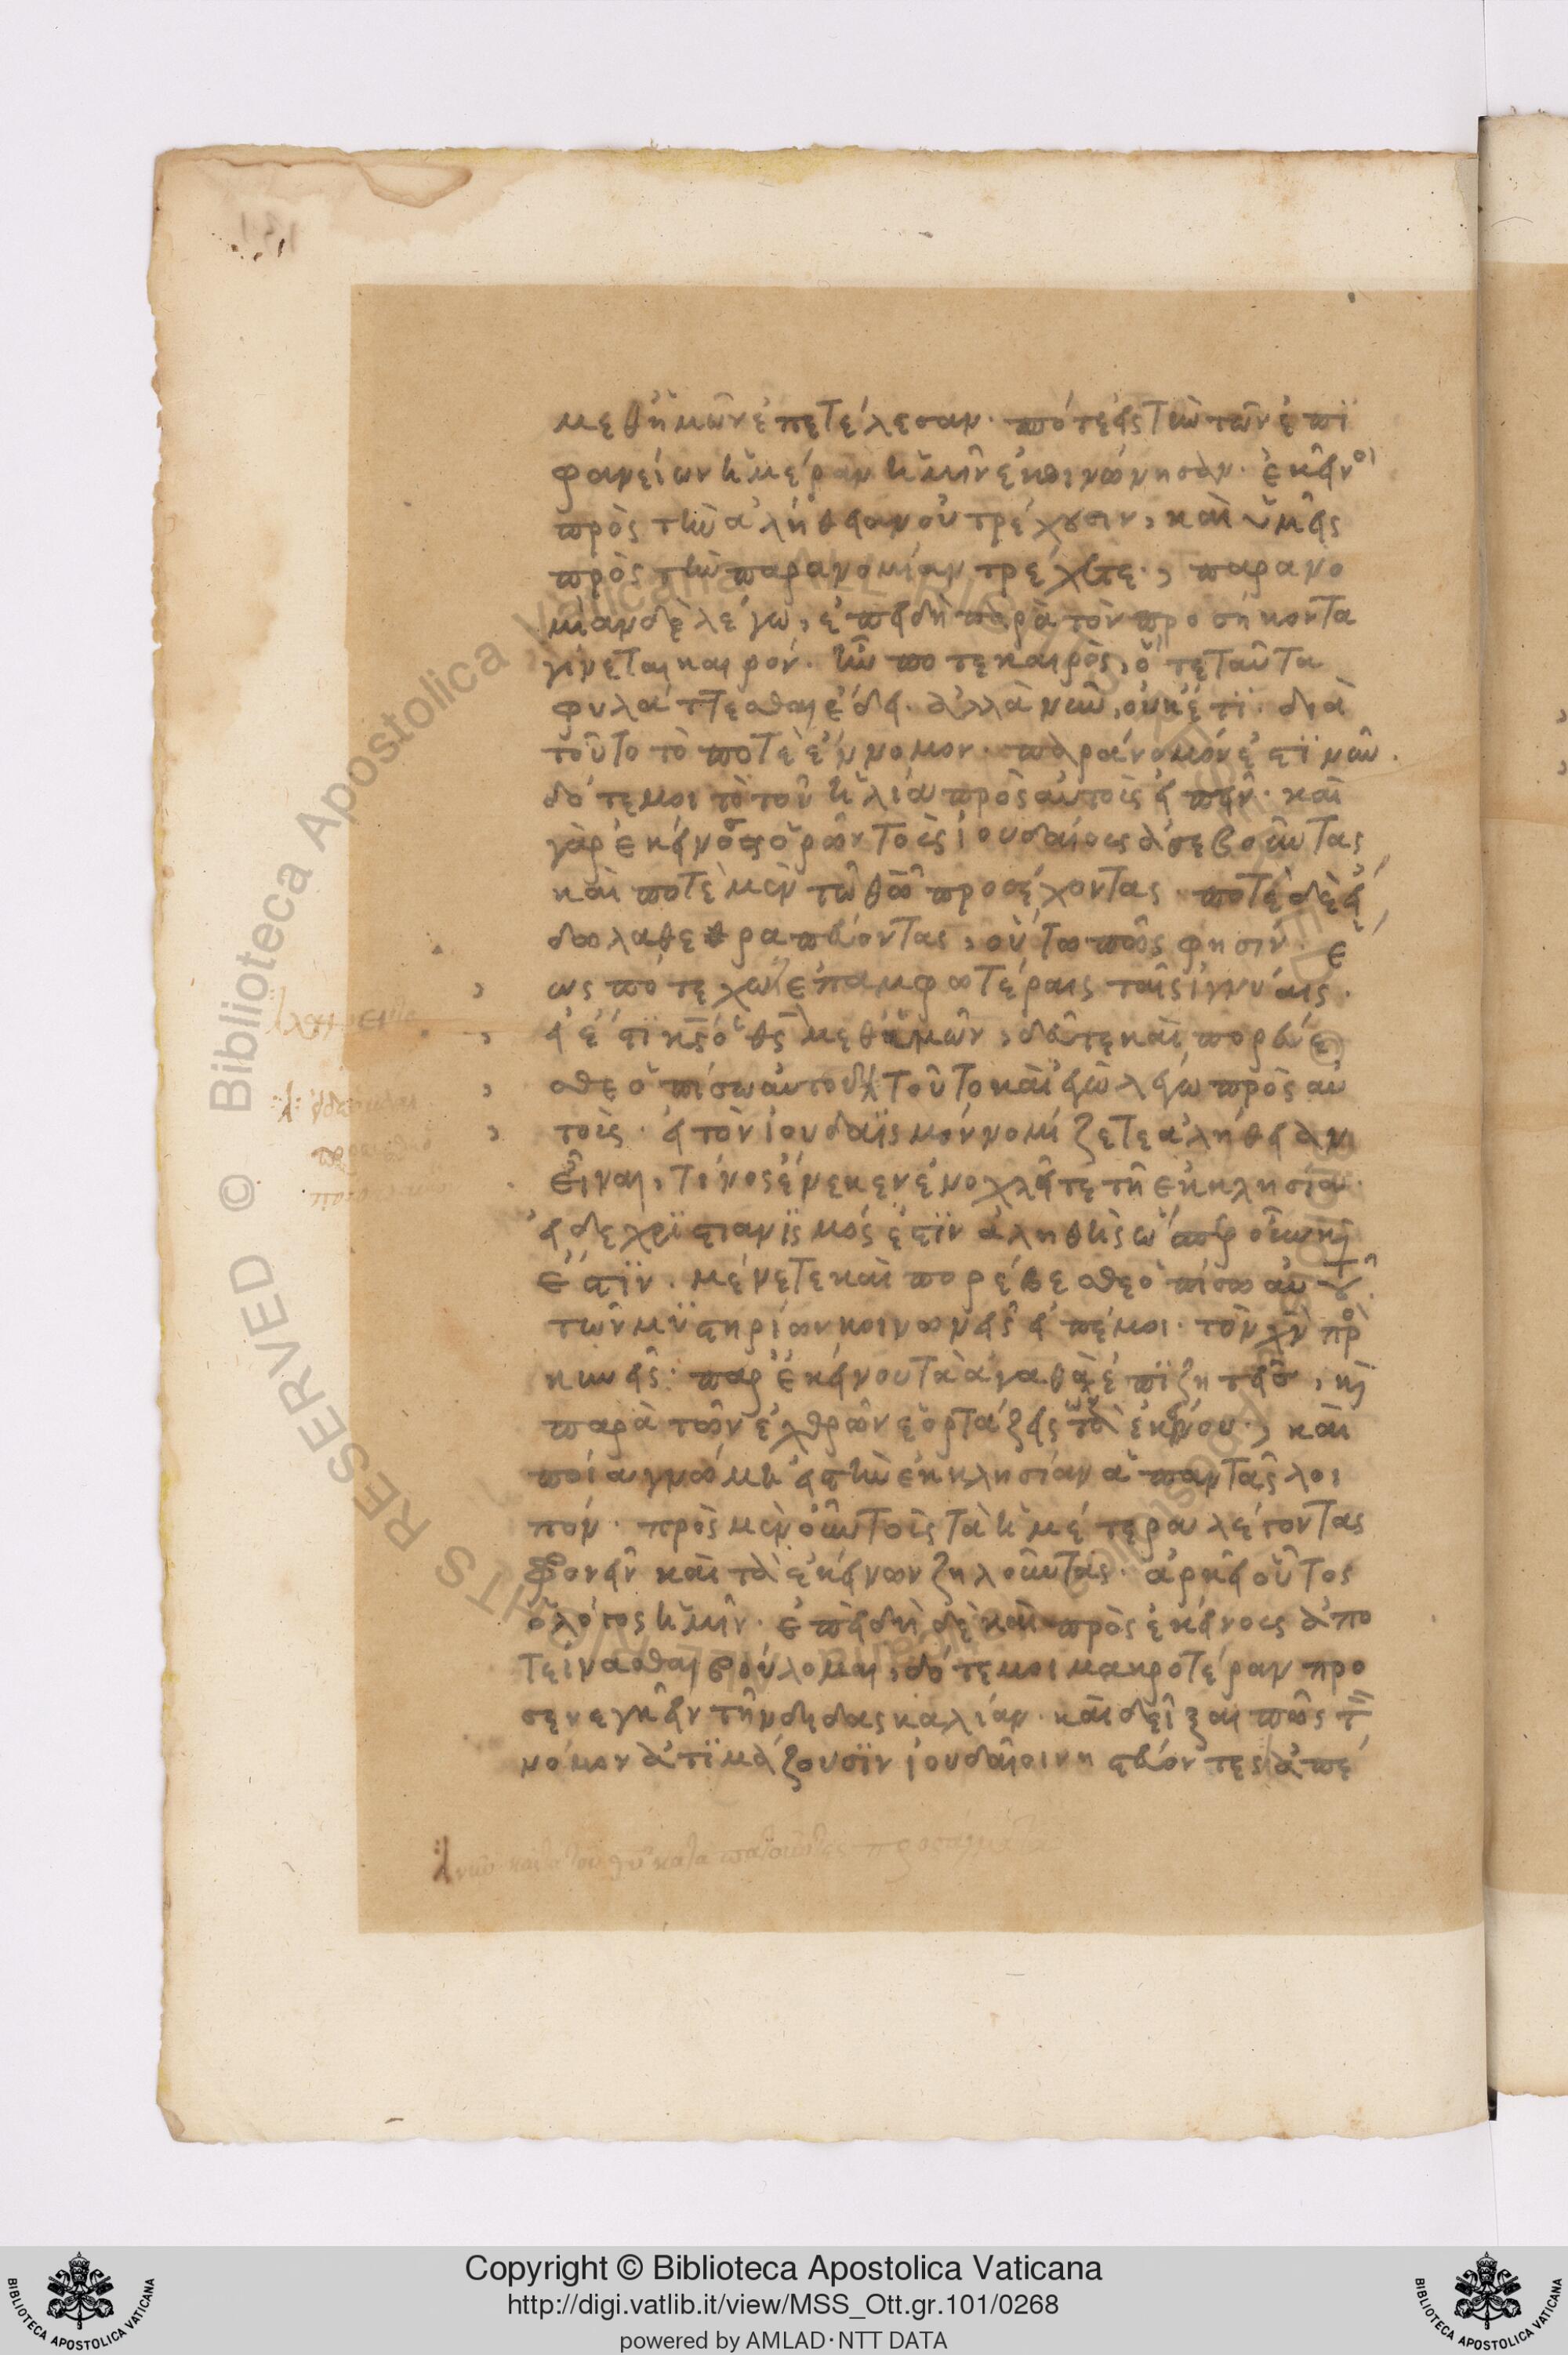 μεθ ἡμῶν ἐπετέλεσαν. πότε εἰς τὴν τῶν ἐπϊ
φανείων ἡμέραν ἡμῖν ἐκοινώνησαν. ἐκεῖνοι
πρὸς τὴν ἀλήθειαν οὐ τρέχουσιν, καὶ ὑμεῖς
πρὸς τὴν παρανομίαν τρέχετε., παρανο
μίαν δὲ λέγω, ἐπειδὴ παρὰ τὸν προσήκοντα
γίνεται καιρόν. ἦν ποτε καιρὸς, ὅτε ταῦτα
φυλάττεσθαι ἔδει. ἀλλὰ νῦν, οὐκέτϊ. διὰ
τοῦτο τὸ ποτὲ ἔννομον. παράνομόν ἐστϊ νῦν.
δότε μοι τὸ τοῦ ἡλίου πρὸς αὐτοὺς εἰπεῖν. καὶ
γὰρ ἐκεῖνος ὁρῶν τοὺς ἰουδαίους ἀσεβοῦντας
καὶ ποτὲ μὲν τῶ θεῶ προσέχοντας. ποτὲ δὲ εἴ
δωλα θεραπεύοντας, οὕτω πῶς φησιν. ἕ
ως πότε χωλ ἐπ αμφοτέραις ταῖς ἰγνύαις.
εἰ ἔστϊ κς ὁ θς μεθ ἡμῶν, δεῦτε καὶ πορεύε
σθε ὀπίσω αὐτοῦ. τοῦτο καὶ ἐγὼ λέγω πρὸς αὐ
τοὺς. εἰ τὸν ἰουδαϊσμὸν νομίζετε ἀλήθειαν
εἶναι, τίνος ἕνεκεν ἐνοχλεῖτε τῆ ἐκκλησία.
εἰ δὲ χρϊστιανϊσμός ἐστϊν ἀληθὴς ὥσπερ οὖν κὶ
ἔστϊν. μένετε καὶ πορεύεσθε ὀπίσω αὐτοῦ.
τῶν μϋστηρίων κοινωνεῖς εἰπέ μοι. τὸν χν πρ
κυνεῖς. παρ ἐκείνου τὰ ἀγαθὰ ἐπϊζητεῖς, κὶ
παρὰ τῶν ἐχθρῶν ἑορτάζεις τῶν ἐκείνου., καὶ
ποία γνώμη εἰς τὴν ἐκκλησίαν ἀπαντᾶς λοι
πόν. πρὸς μὲν οὖν τοὺς τὰ ἡμέτερα λέγοντας
φρονεῖν καὶ τὰ ἐκείνων ζηλοῦντας. ἀρκεῖ οὗτος
ὁ λόγος ἡμῖν. ἐπειδὴ δὲ καὶ πρὸς ἐκείνους ἀπο
τείνασθαι βούλομαι, δότε μοι μακροτέραν προ
σενεγκεῖν τὴν διδασκαλίαν. καὶ δεῖξαι πῶς τ
νόμον ἀτϊμάζουσϊν ἰουδαῖοι νηστεύοντες ἀπέ
Copyright © Biblioteca Apostolica Vaticana
http://digi.vatlib.it/view/MSS_Ott.gr.101/0268
powered by AMLAD·NTT DATA